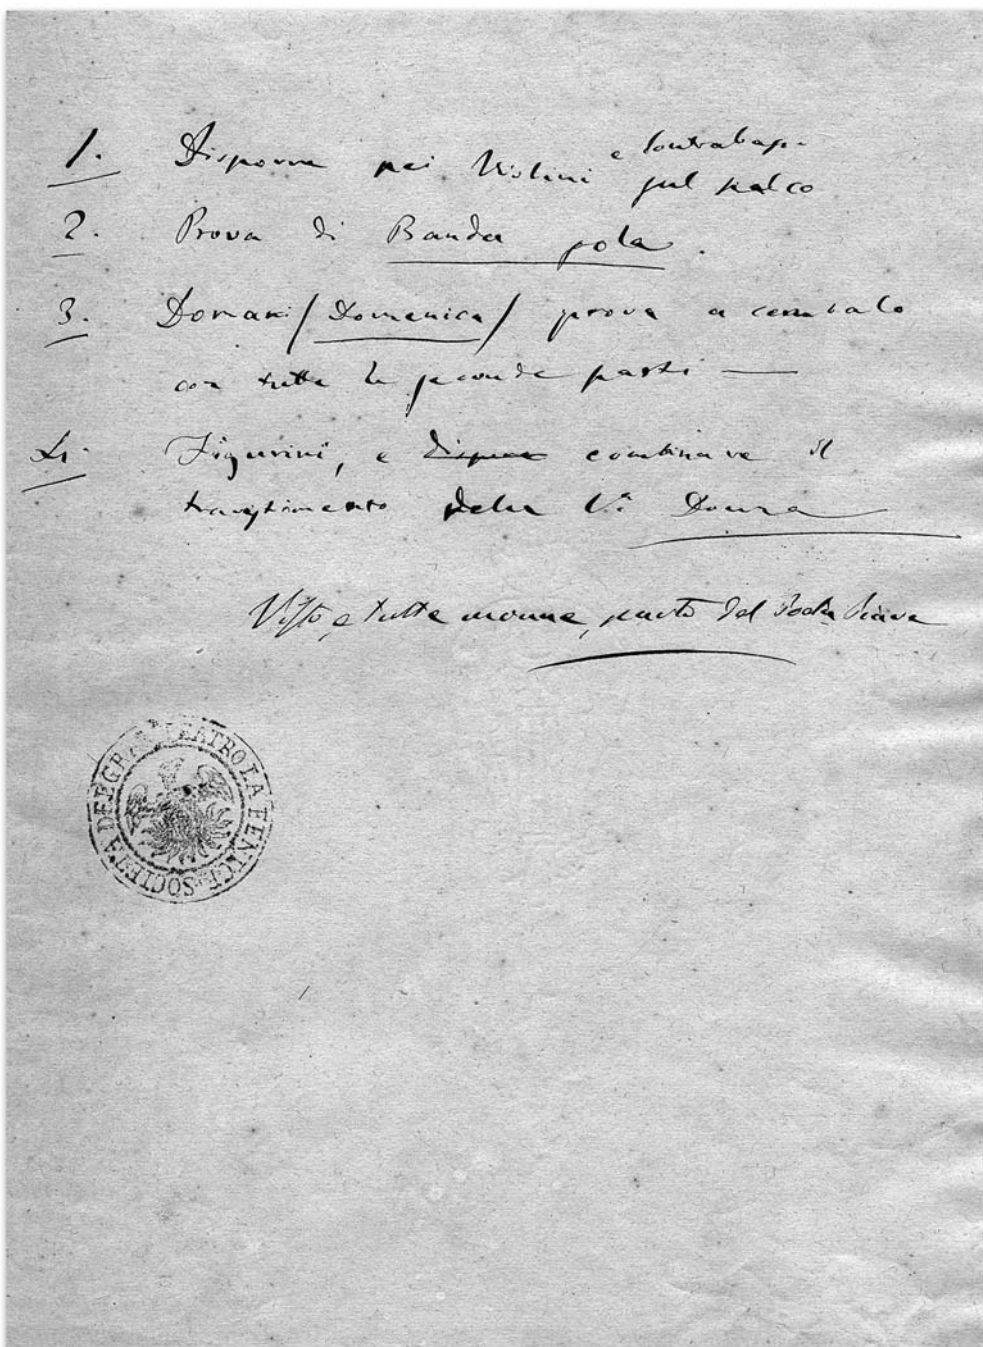 1. Disporre pei Violini e Contrabassi
sul palco
2. Prova di Banda sola.
3. Domani / Domenica / prova a cembalo
con tutte le seconde parti —
4. Figurini, e combinare il
travestimento della Va Donna
Visto, e tutte, parto del Poeta Piave
SOCIETA DEL GRAN TEATRO LA FENICE